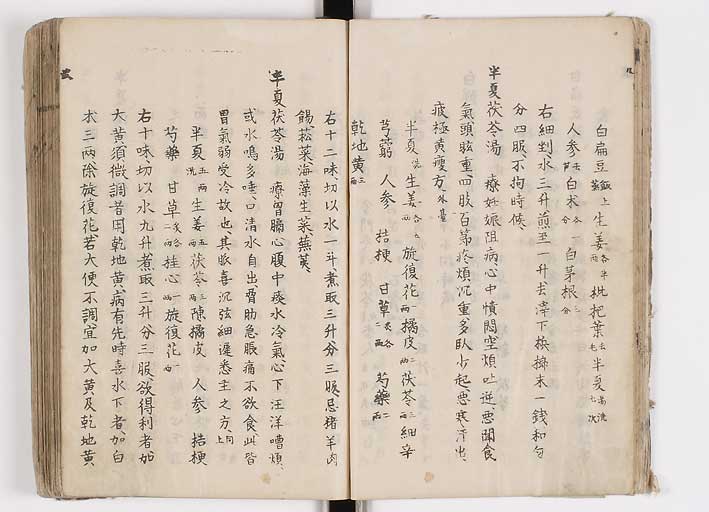 白扁豆 飯上蒸 生姜 各半兩 枇杷葉 去毛 半夏 湯洗七次
人参 去芦 白朮 各分 白茅根 三分
右細剉水三升煎至一升去滓下檳榔末一錢和勻
分四服不拘時候
半夏茯苓湯 療妊娠阻病心中憒悶空煩吐逆悪聞食
氣頭眩重四肢百節疼煩沉重多臥少起悪寒汗出
疲極黄瘦方 外臺
半夏 洗 生姜 各五兩 旋復花 一兩 橘皮 二兩 茯苓 三兩 細辛
芎藭 人参 桔梗 甘草 炙各二兩 芍藥 二兩
乾地黄 三兩
右十二味切以水一斗煮取三升分三服忌猪羊肉
餳菘菜海藻生菜蕪荑
半夏茯苓湯 療胷膈心腹中痰水冷氣心下汪洋嘈煩
或水鳴多唾口清水自出脅肋急脹痛不欲食此皆
胃氣弱受冷故也其脉喜沉弦細遲悉主之方 同上
半夏 五兩洗 生姜 五兩 茯苓 三兩 陳橘皮 人参 桔梗
芍藥 甘草 炙各二兩 桂心 一兩 旋復花 一兩
右十味切以水九升煮取三升分三服欲得利者加
大黄須微調者用乾地黄病有先時喜水下者加白
朮三兩除旋復花若大便不調宜加大黄及乾地黄